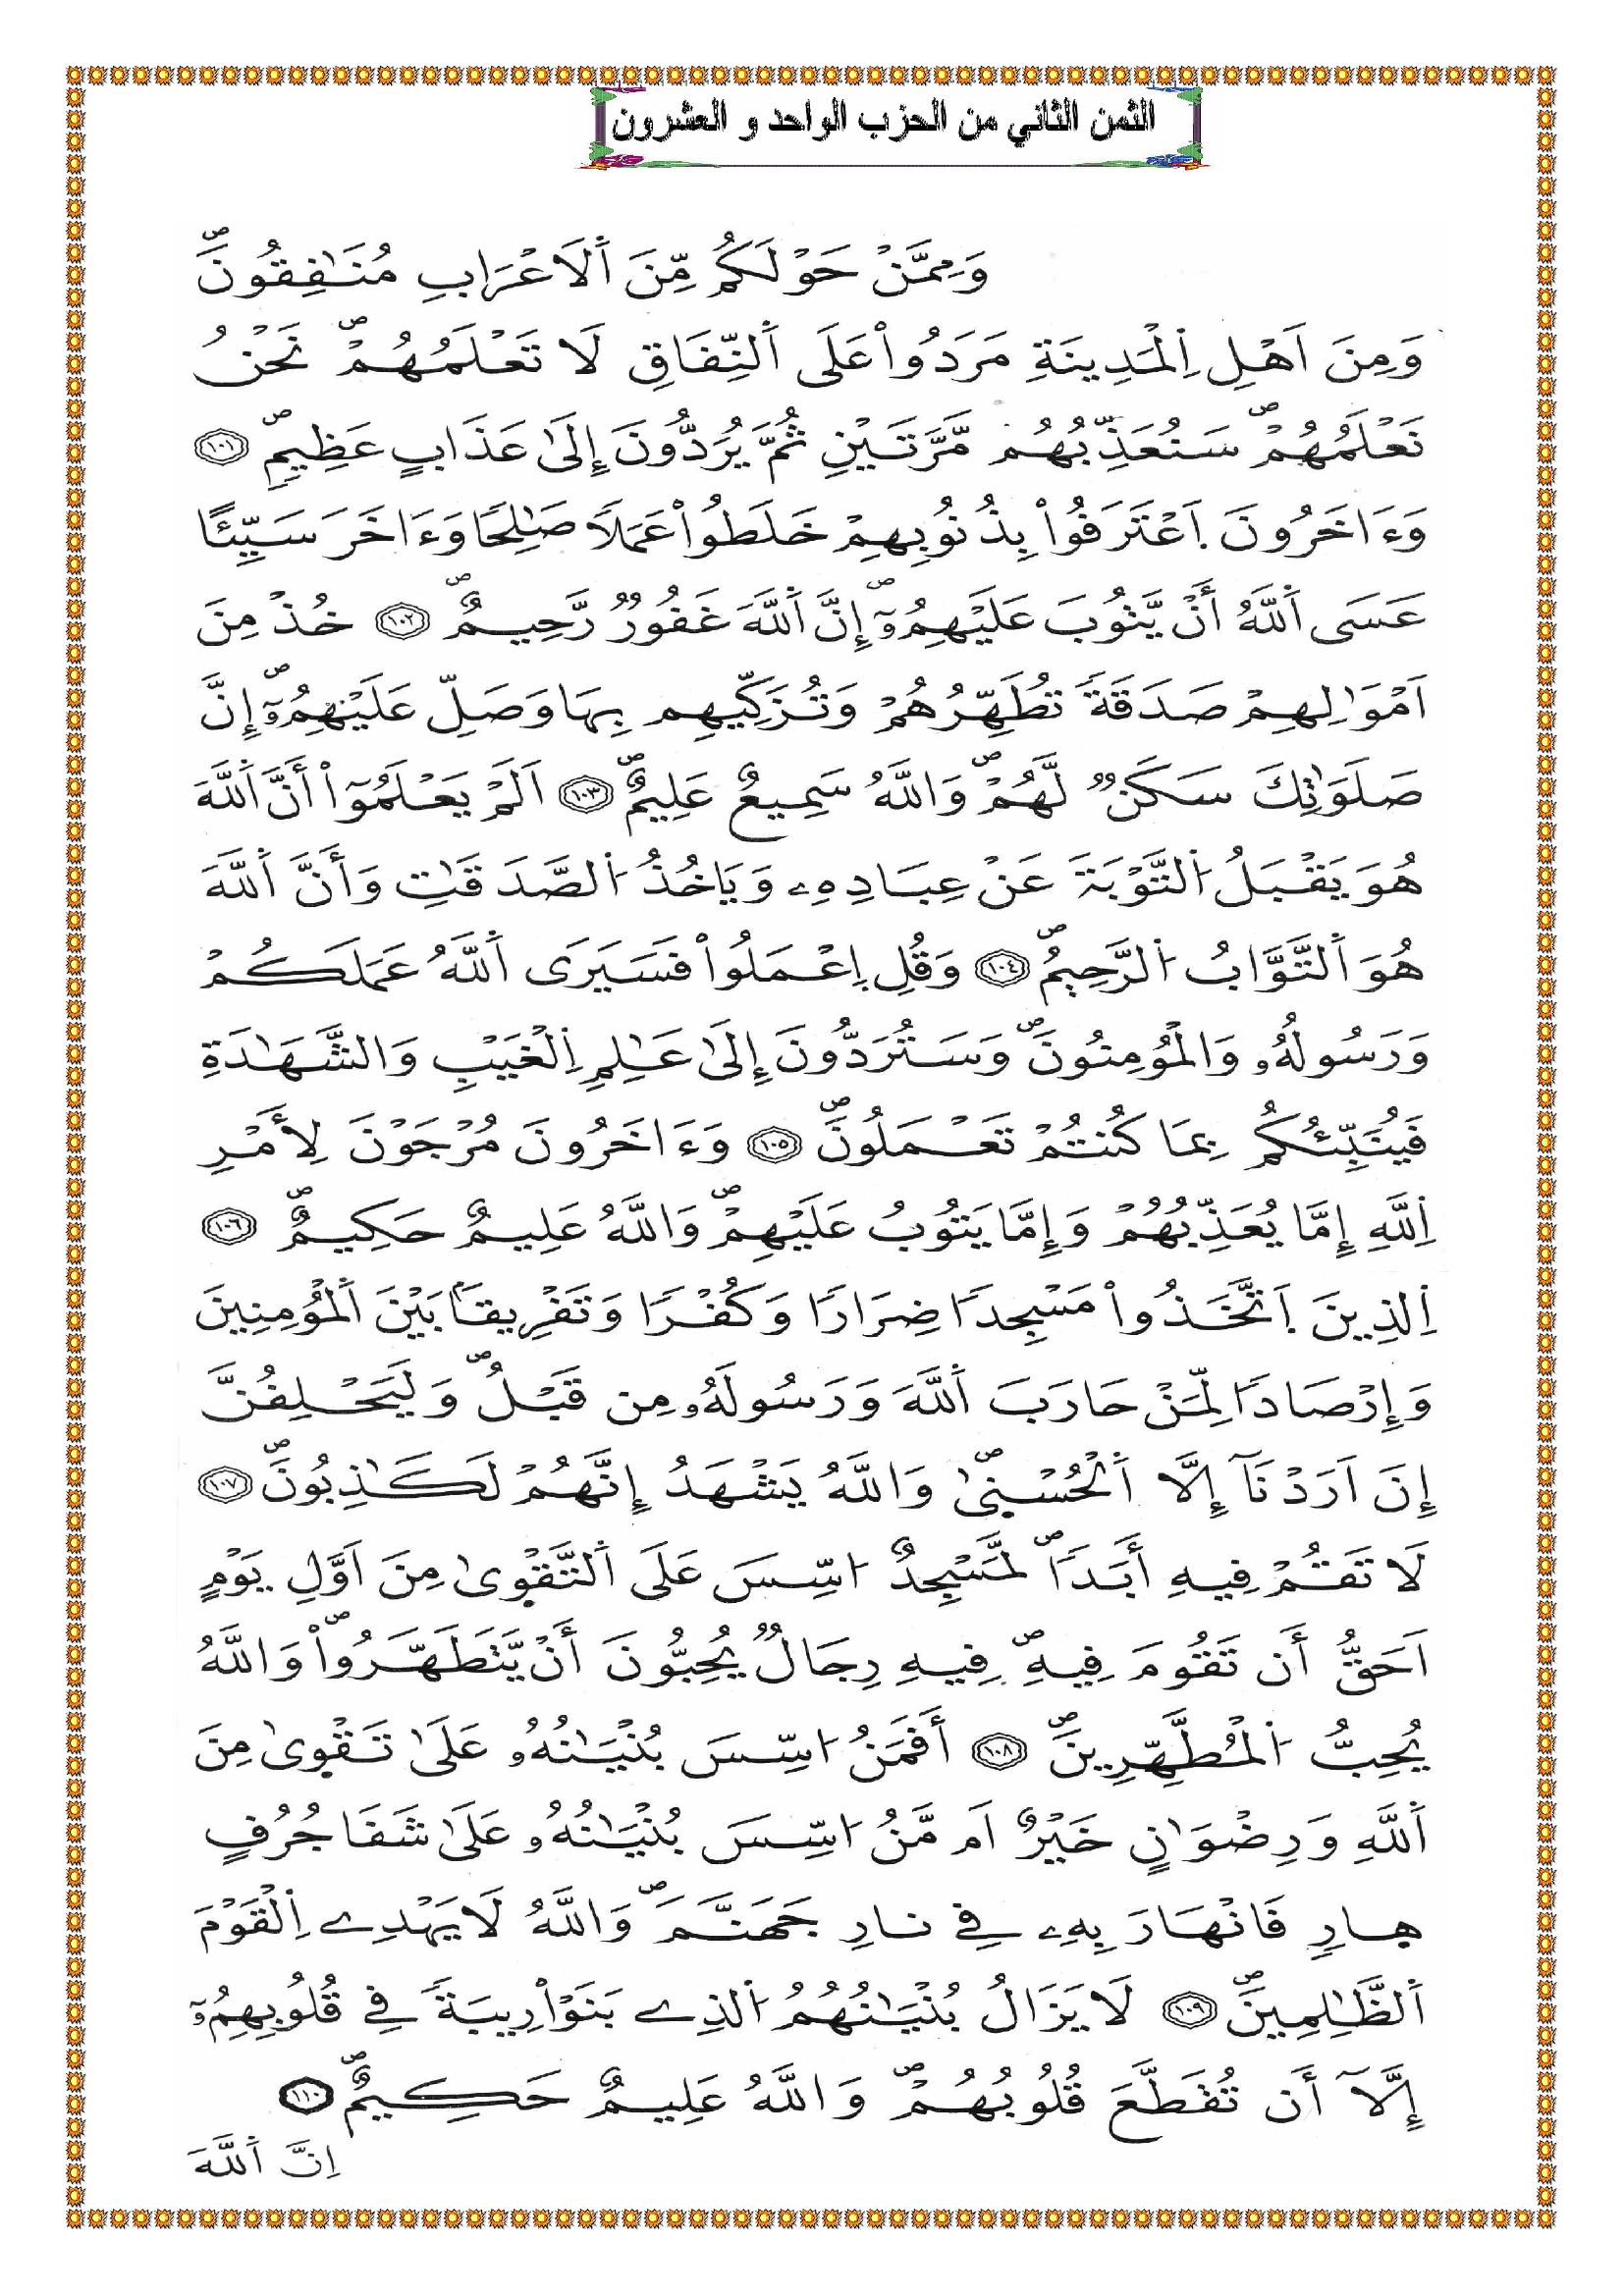 الثمن الثاني من الحزب الواحد و العشرون
وَمِمَّنْ حَوْلَكُم مِّنَ اَ۬لَاعْرَابِ مُنَٰفِقُونَۖ
وَمِنَ اَهْلِ اِ۬لْمَدِينَةِ مَرَدُواْ عَلَى اَ۬لنِّفَاقِ لَا تَعْلَمُهُمْۖ نَحْنُ
نَعْلَمُهُمْۖ سَنُعَذِّبُهُم مَّرَّتَيْنِ ثُمَّ يُرَدُّونَ إِلَىٰ عَذَابٍ عَظِيمٖۖ ١٠١
وَءَاخَرُونَ اَ۪عْتَرَفُواْ بِذُنُوبِهِمْ خَلَطُواْ عَمَلاٗ صَٰلِحاٗ وَءَاخَرَ سَيِّئاً
عَسَى اَ۬للَّهُ أَنْ يَّتُوبَ عَلَيْهِمُۥٓۖ إِنَّ اَ۬للَّهَ غَفُورٞ رَّحِيمٌۖ ١٠٢ خُذْ مِنَ
اَمْوَٰلِهِمْ صَدَقَةٗ تُطَهِّرُهُمْ وَتُزَكِّيهِم بِهَا وَصَلِّ عَلَيْهِمُۥٓۖ إِنَّ
صَلَوَٰتِكَ سَكَنٞ لَّهُمْۖ وَاللَّهُ سَمِيعٌ عَلِيمٌۖ ١٠٣ اَلَمْ يَعْلَمُوٓاْ أَنَّ اَ۬للَّهَ
هُوَ يَقْبَلُ اُ۬لتَّوْبَةَ عَنْ عِبَادِهِۦ وَيَاخُذُ اُ۬لصَّدَقَٰتِ وَأَنَّ اَ۬للَّهَ
هُوَ اَ۬لتَّوَّابُ اُ۬لرَّحِيمُۖ ١٠٤ وَقُلِ اِ۪عْمَلُواْ فَسَيَرَى اَ۬للَّهُ عَمَلَكُمْ
وَرَسُولُهُۥ وَالْمُؤْمِنُونَۖ وَسَتُرَدُّونَ إِلَىٰ عَٰلِمِ اِ۬لْغَيْبِ وَالشَّهَٰدَةِ
فَيُنَبِّئُكُم بِمَا كُنتُمْ تَعْمَلُونَۖ ١٠٥ وَءَاخَرُونَ مُرْجَوْنَ لِأَمْرِ
اِ۬للَّهِ إِمَّا يُعَذِّبُهُمْ وَإِمَّا يَتُوبُ عَلَيْهِمْۖ وَاللَّهُ عَلِيمٌ حَكِيمٌۖ ١٠٦
اِ۬لذِينَ اَ۪تَّخَذُواْ مَسْجِداٗ ضِرَاراٗ وَكُفْراٗ وَتَفْرِيقاَۢ بَيْنَ اَ۬لْمُؤْمِنِينَ
وَإِرْصَاداٗ لِّمَنْ حَارَبَ اَ۬للَّهَ وَرَسُولَهُۥ مِن قَبْلُۖ وَلَيَحْلِفُنَّ
إِنَ اَرَدْنَآ إِلَّا اَ۬لْحُسْنَىٰۖ وَاللَّهُ يَشْهَدُ إِنَّهُمْ لَكَٰذِبُونَۖ ١٠٧
لَا تَقُمْ فِيهِ أَبَداٗۖ لَّمَسْجِدٌ اُسِّسَ عَلَى اَ۬لتَّقْوَىٰ مِنَ اَوَّلِ يَوْمٍ
اَحَقُّ أَن تَقُومَ فِيهِۖ فِيهِ رِجَالٞ يُحِبُّونَ أَنْ يَّتَطَهَّرُواْۖ وَاللَّهُ
يُحِبُّ اُ۬لْمُطَّهِّرِينَۖ ١٠٨ أَفَمَنُ اسِّسَ بُنْيَٰنُهُۥ عَلَىٰ تَقْوَىٰ مِنَ
اَ۬للَّهِ وَرِضْوَٰنٍ خَيْرٌ اَم مَّنُ اسِّسَ بُنْيَٰنُهُۥ عَلَىٰ شَفَا جُرُفٍ
هِارٖ فَانْهَارَ بِهِۦ فِے نارِ جَهَنَّمَۖ وَاللَّهُ لَا يَهْدِے اِ۬لْقَوْمَ
اَ۬لظَّٰلِمِينَۖ ١٠٩ لَا يَزَالُ بُنْيَٰنُهُمُ اُ۬لذِے بَنَوْاْ رِيبَةٗ فِے قُلُوبِهِمُۥٓ
إِلَّآ أَن تُقَطَّعَ قُلُوبُهُمْۖ وَاللَّهُ عَلِيمٌ حَكِيمٌۖ ١١٠
اِنَّ اَ۬للَّهَ